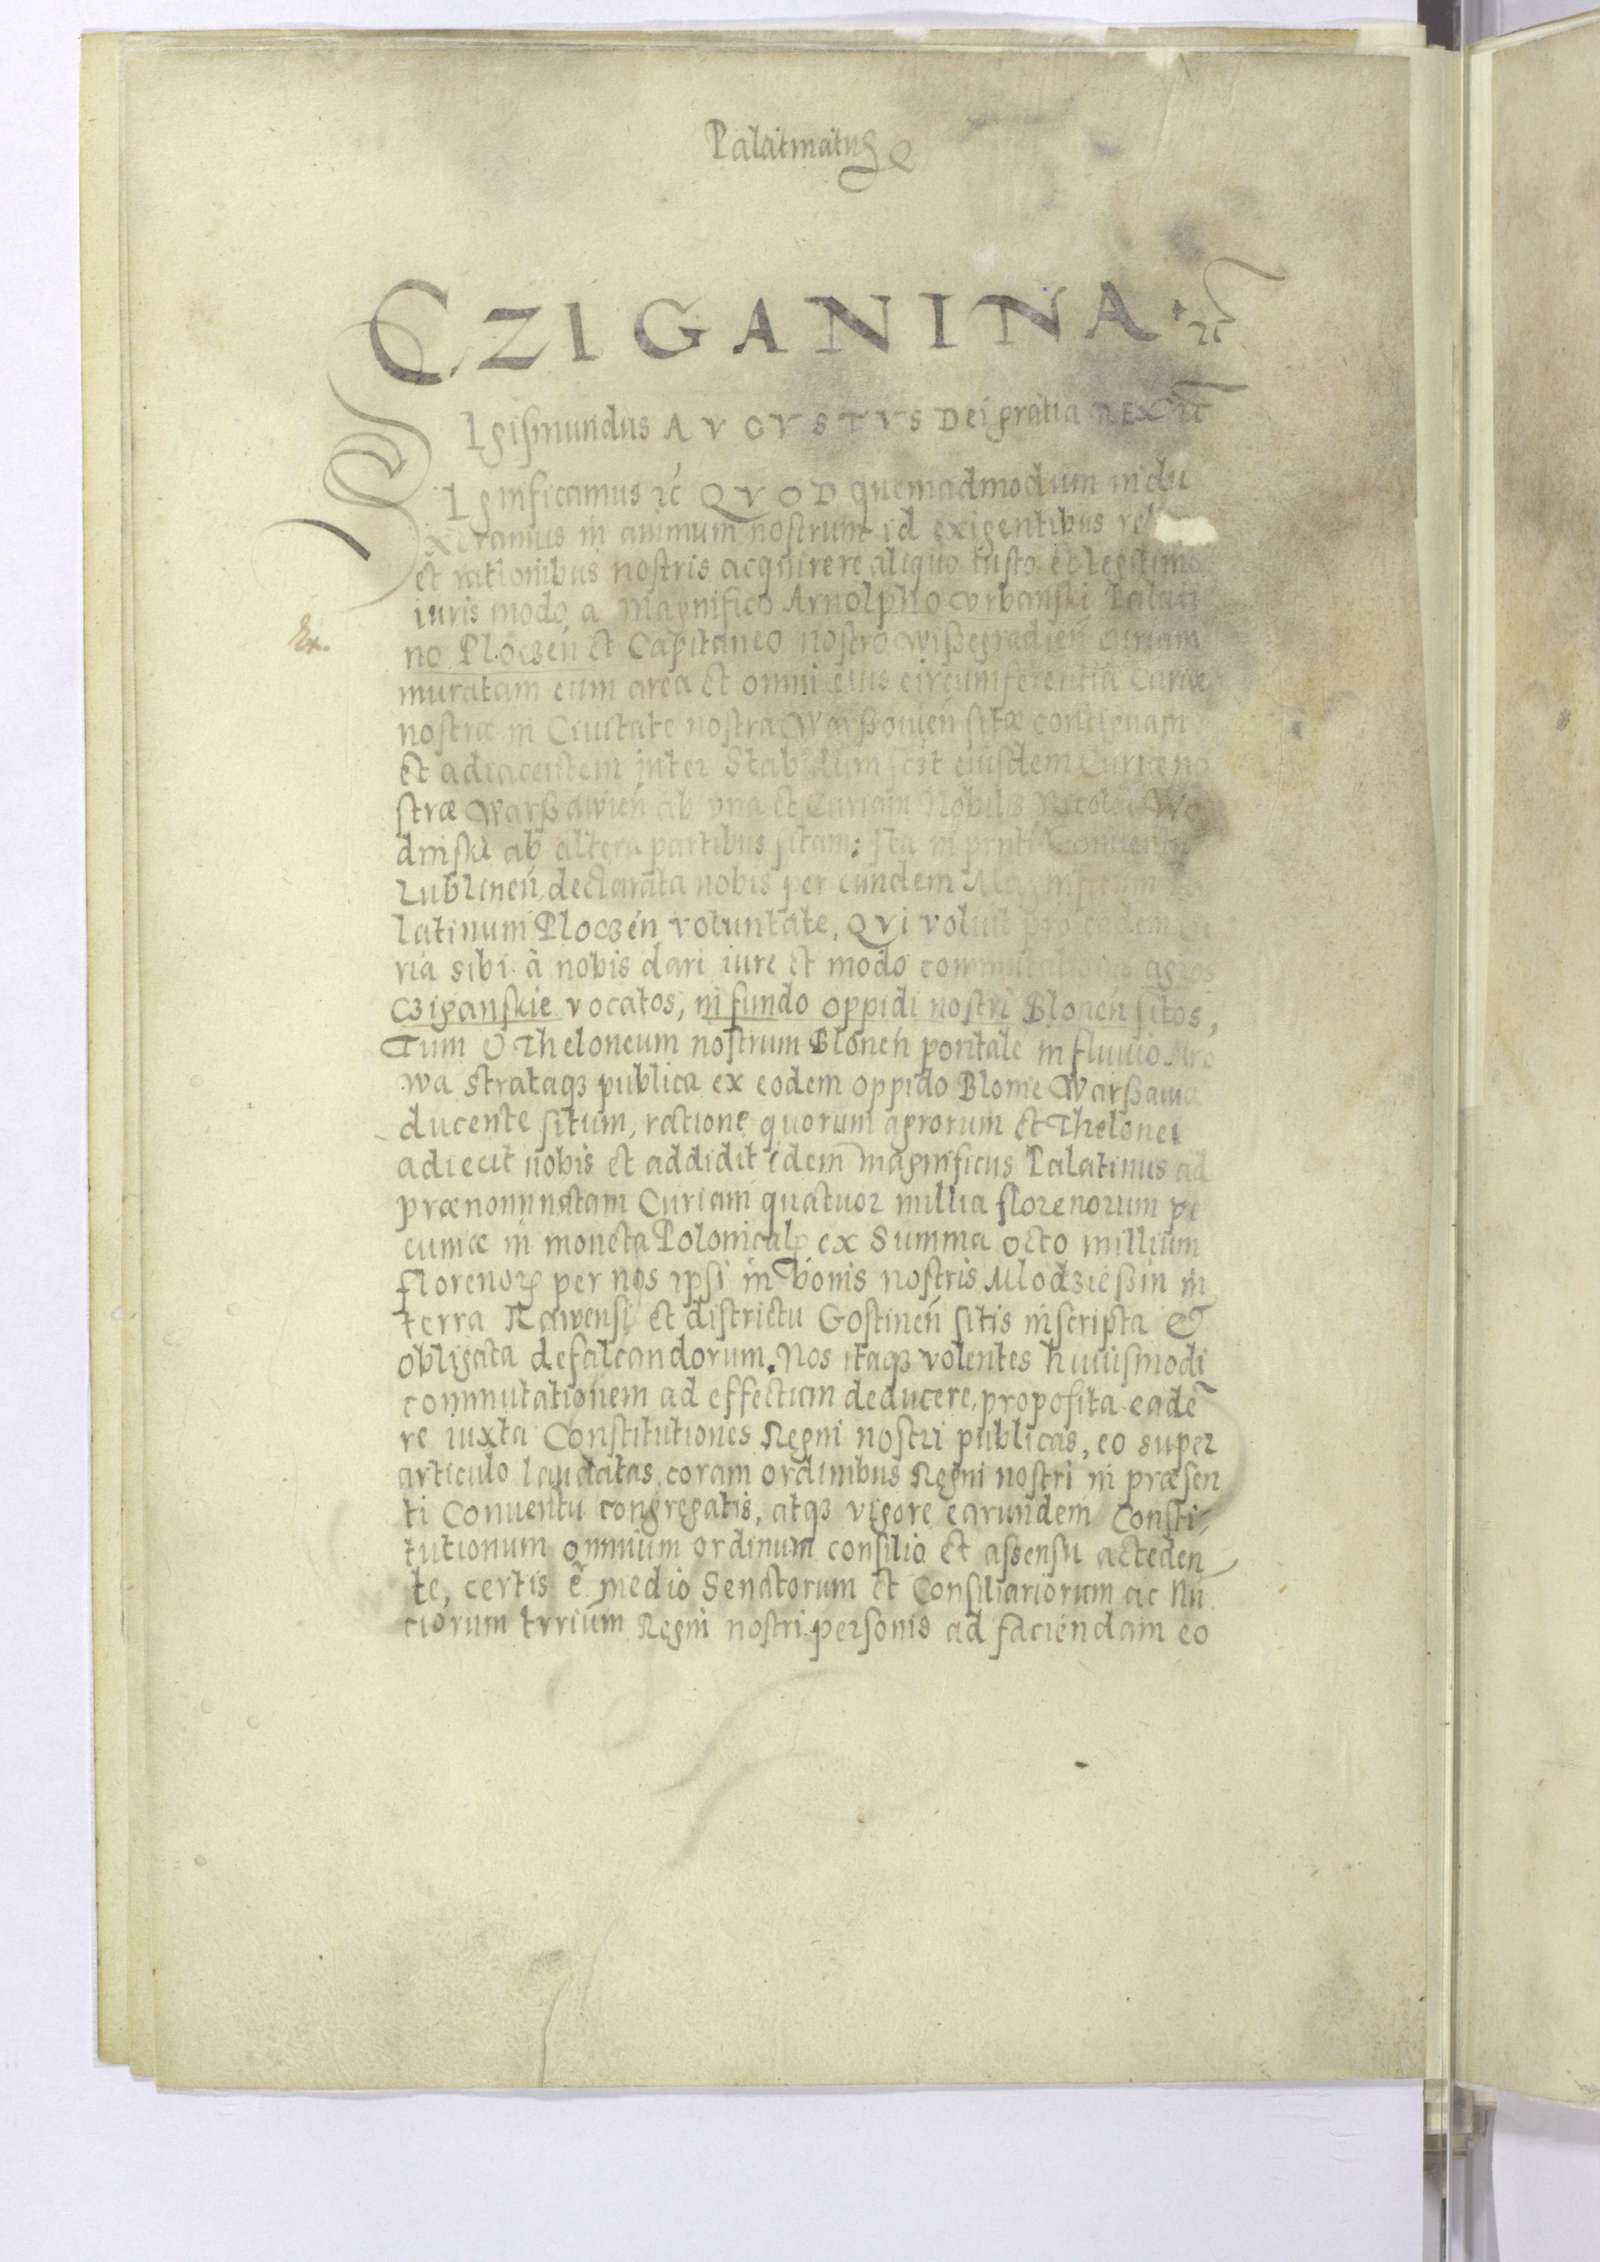 Palatinatus
CZIGANINA · ꝛc̃
Sigismundus AVGVSTVS Dei gratia REX ꝛc̃
Significamus ꝛc̃ QVOD quemadmodum indu
xeramus in animum nostrum id exigentibus
et rationibus nostris acquirere aliquo iusto et legitimo
iuris modo a Magnifico Arnolpho Vrbanski Palati
no Ploczeń et Capitaneo nostro Wißegradień Curiam
muratam cum area et omni eius circumferentia Curiæ
nostræ in Ciuitate nostra Warßouień sitæ contiguam
et adiacentem inter Stabulum scz̃ eiusdem Curiæ no
stræ Warßawień ab vna et Curiam Nobilis Nicolai Wo
dinski ab altera partibus sitam: Ita in pñti Conuentu
Lublineń, declarata nobis per eundem Magnificum Pa
latinum Ploczeń voluntate, Qvi voluit pro eadem Cu
ria sibi à nobis dari iure et modo commutationis agros
Cziganskie vocatos, in fundo oppidi nostri Bloneń sitos,
Tum & Theloneum nostrum Bloneń pontale in fluuio Mro
wa strataqȝ publica ex eodem oppido Blonie Warßawiā
ducente situm, ratione quorum agrorum et Thelonei
adiecit nobis et addidit idem Magnificus Palatinus ad
prænominatam Curiam quatuor millia florenorum pe
cuniæ in moneta Polonicalj ex Summa octo millium
florenorꝝ per nos ipsi in bonis nostris Mlodzießin in
terra Rawensi et districtu Gostineń sitis inscripta &
obligata defalcandorum. Nos itaqȝ volentes huiusmodi
commutationem ad effectum deducere, proposita eadē
re iuxta Constitutiones Regni nostri publicas, eo super
articulo laudatas, coram ordinibus Regni nostri in præsen
ti Conuentu congregatis, atqȝ vigore earundem Consti-
tutionum omnium ordinum consilio et assensu acceden
te, certis ē medio Senatorum et Consiliariorum ac Nū
ciorum trriūm Regni nostri personis ad faciendam eo